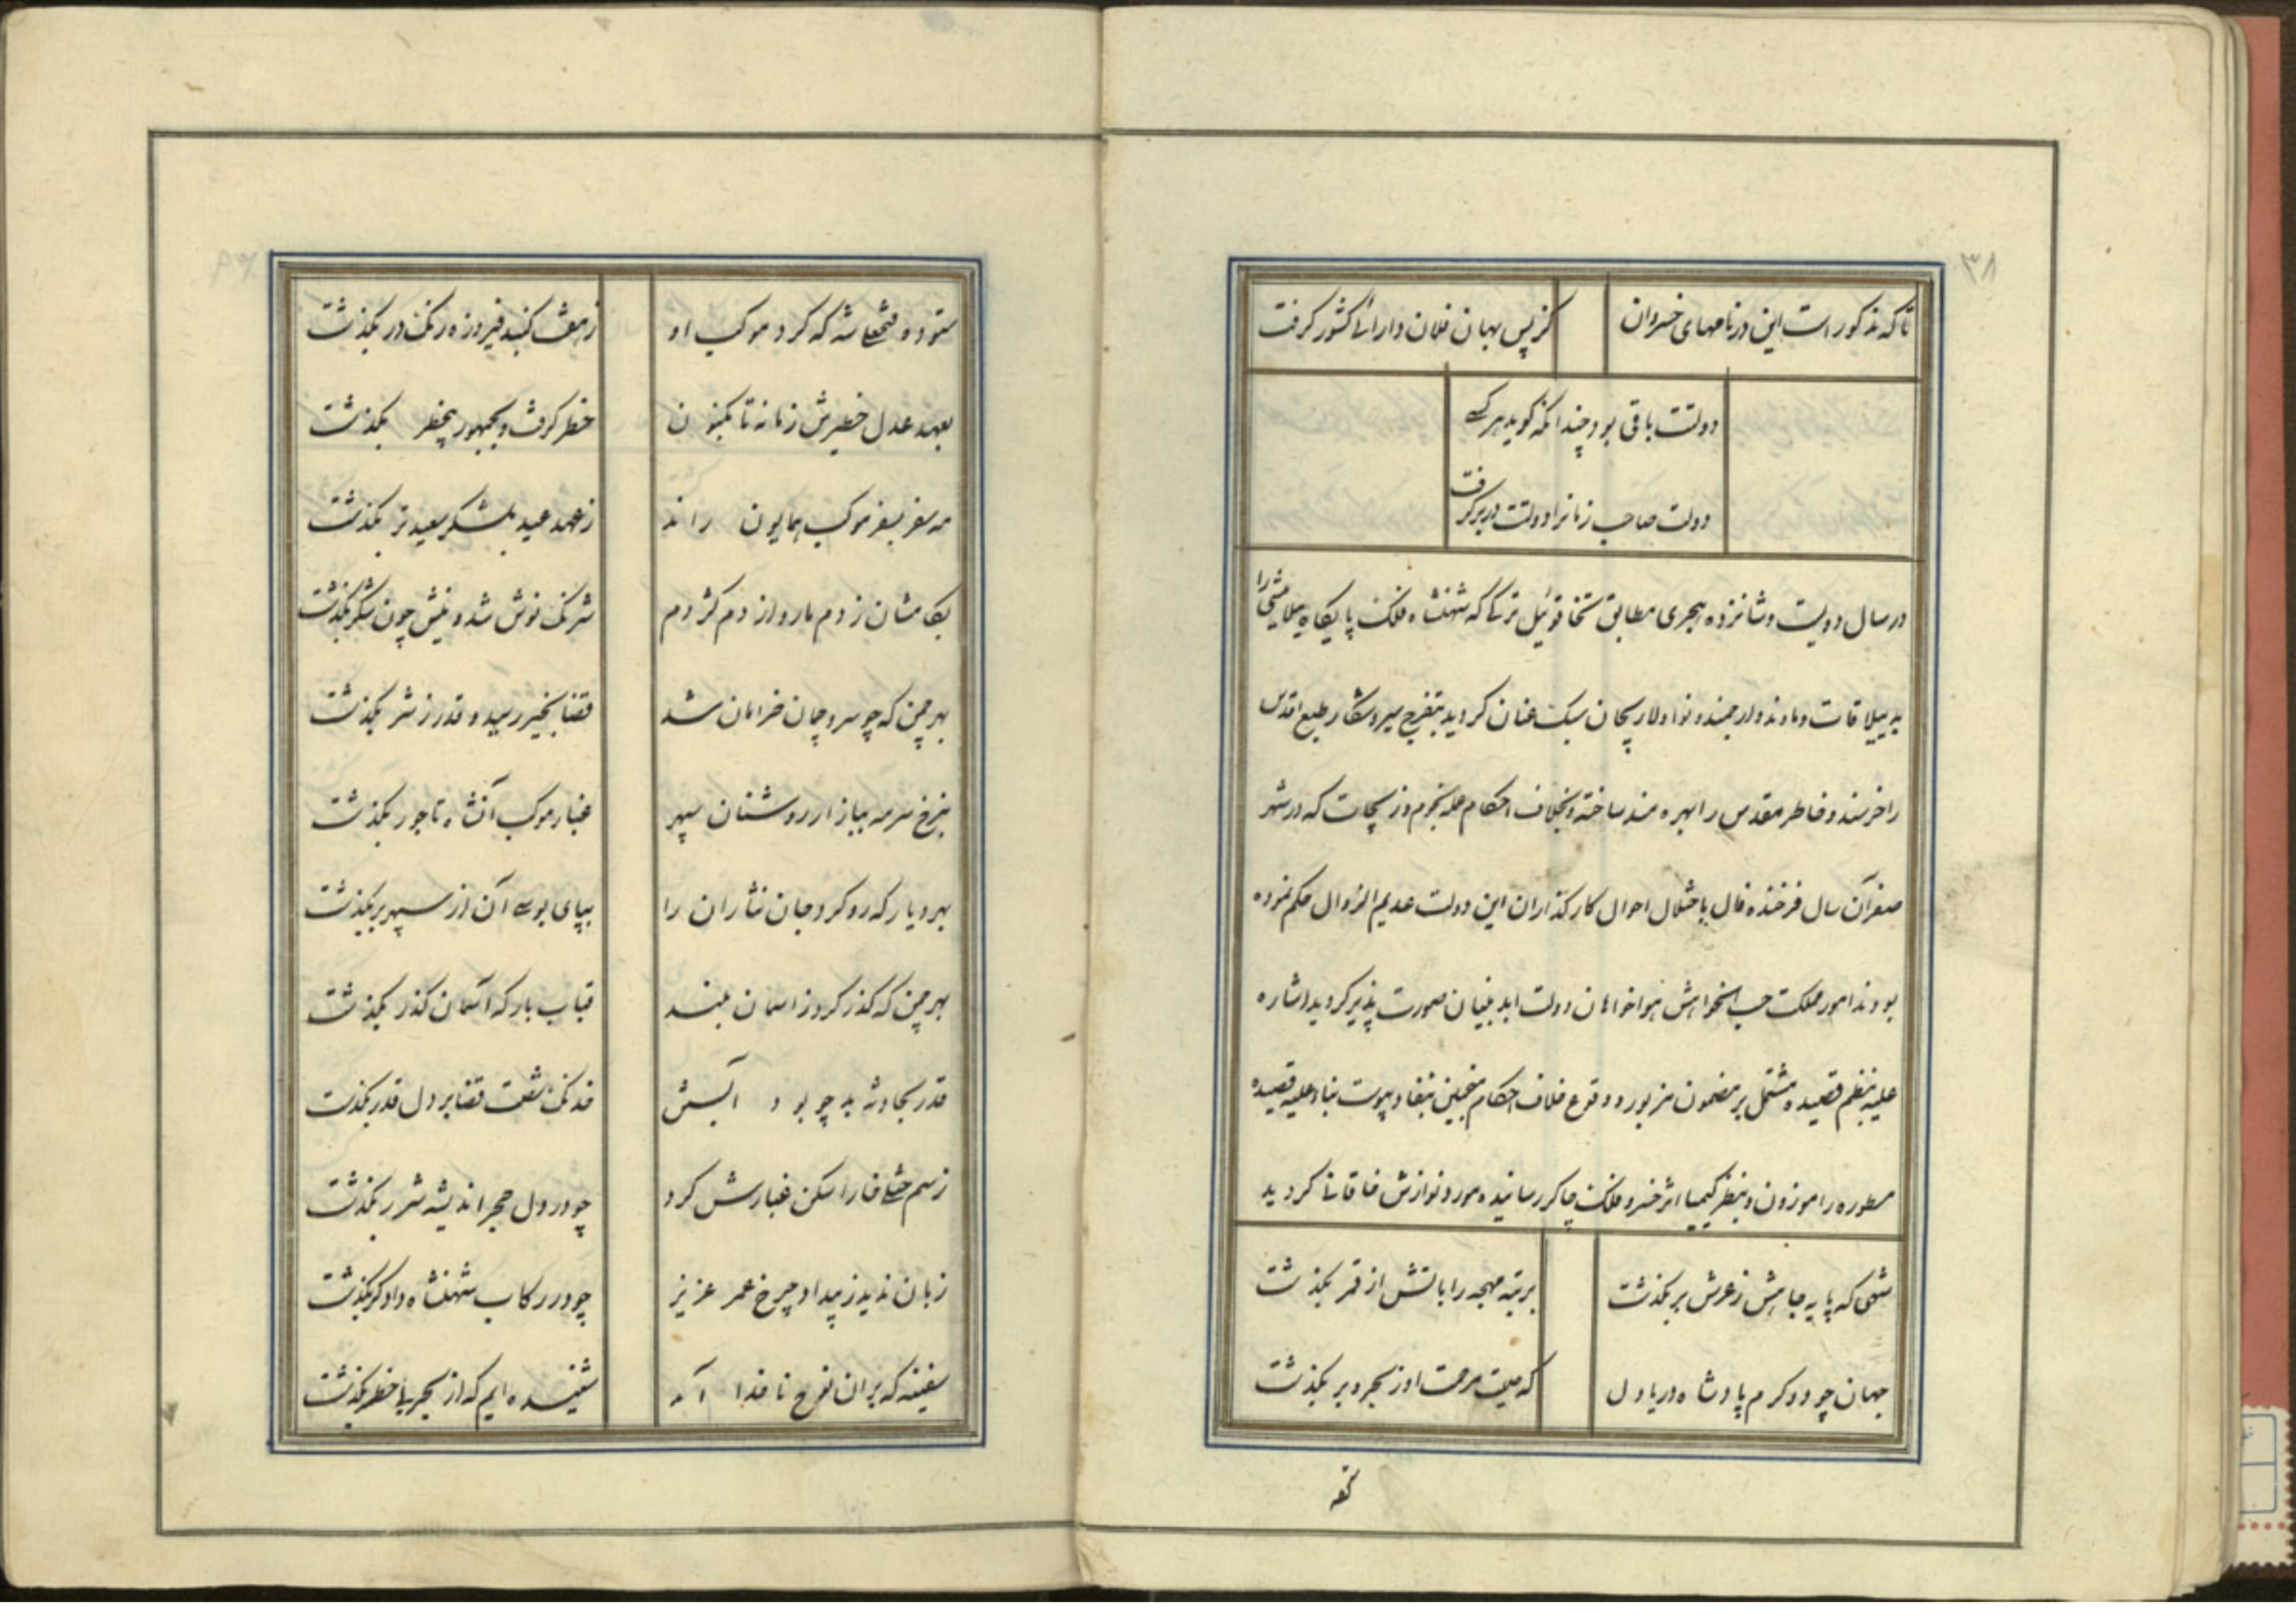 ۳۸
تا که مذکور است این در نامهای خسروان
کز پس بهمان فلان دارائی کشور گرفت
دولتت باقی بود چندانکه گوید هر کسی
دولت صاحب زمانرا دولتت در بر گرفت
در سال دویست و شانزده هجری مطابق تخاقوئیل ترکی که شهنشاه فلک پایگاه
به ییلاقات دماوند و ارجمند و نوا و لاریجان سبک عنان گردید بتفرج سیر و شکار طبع اقدس
را خرسند و خاطر مقدس را بهره مند ساخته و بخلاف احکام نجوم و زیجات که در شهر
صفر آن سال فرخنده فال باختلال احوال کارگذاران این دولت عدیم الزوال حکم نموده
بودند امور مملکت حسب الخواهش هواخواهان دولت ابد بنیان صورت پذیر گردید اشاره
علیه بنظم قصیده مشتمل بر مضمون مزبور و وقوع خلاف احکام منجمین بنفاد پیوست بناء علیه قصیده
مسطوره را موزون و بنظر کیمیا اثر خسرو فلک چاکر رسانیده مورد نوازش خاقانی گردید
شهی که پایه جاهش ز عرش بر بگذشت
برتبه مهجه رایاتش از قمر بگذشت
جهان جود و کرم پادشاه دریا دل
که صیت مرحمت او ز بحر و بر بگذشت
ستوده فتحعلی شه که گرد موکب او
ز سقف گنبد فیروزه رنگ در بگذشت
بعهد عدل خطیرش زمانه تا بکنون
خطر گرفت و بجمهور بیخطر بگذشت
مه صفر بسفر موکب همایون راند
ز عهد عید بلشکر سعیدتر بگذشت
بکامشان ز دم مار و از دم کژدم
شرنگ نوش شد و نیش چون شکر بگذشت
بهر چمن که چو سرو چمان خرامان شد
قضا بخیر رسید و قدر ز شر بگذشت
بنرخ سرمه ببازار روشنان سپهر
غبار موکب آنشاه تاجور بگذشت
بهر دیار که رو کرد جان نثاران را
بپای بوسی آن از سپهر بر بگذشت
بهر چمن که گذر کرد ز اسمان بلند
قباب بارگه آسمان گذر بگذشت
قدر بحادثه بد چو بود آبستن
خدنگ شصت قضا بر دل قدر بگذشت
ز سم خنگی خارا شکن غبارش کرد
چو در دل حجر اندیشه شرر بگذشت
زیان ندید ز بیداد چرخ عمر عزیز
چو در رکاب شهنشاه دادگر بگذشت
سفینه که بر آن نوح ناخدا آمد
شنیده ایم که از بحر با خطر بگذشت